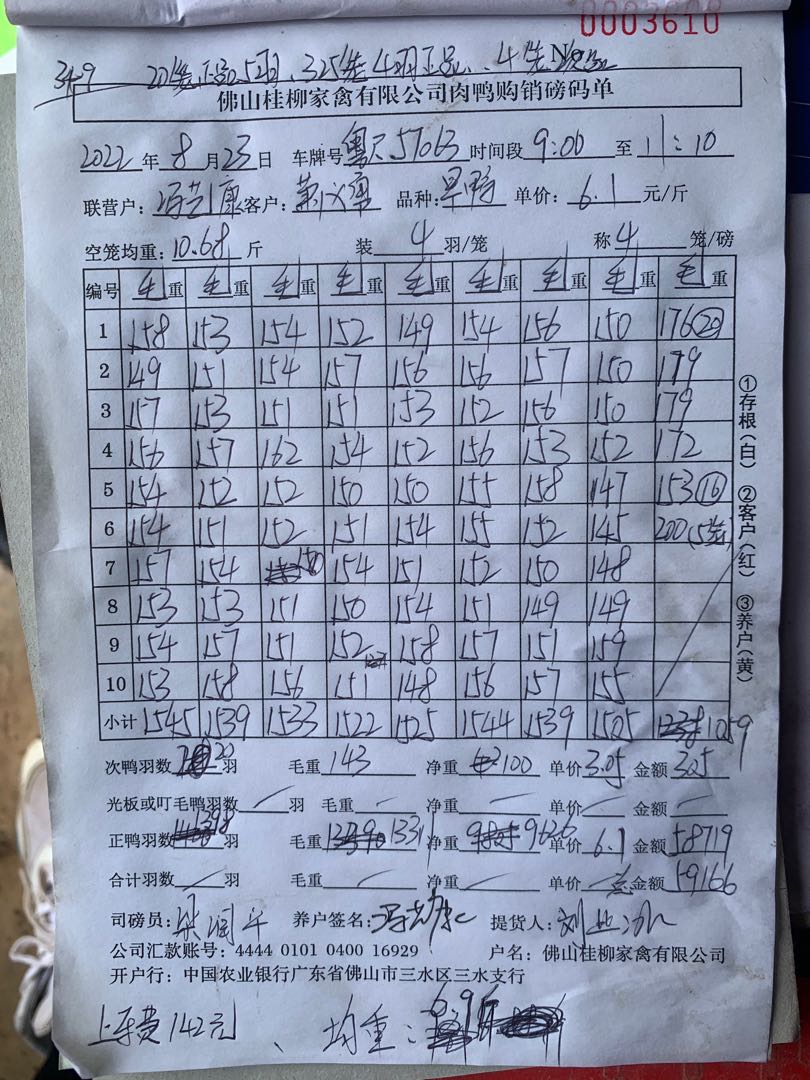 0003610
349 20笼正品5羽、325笼4羽正品、4笼
佛山桂柳家禽有限公司肉鸭购销磅码单
2022年8月23日 车牌号 粤 57063 时间段 9:00 至 11:10
联营户: 康 客户: 萧 品种: 旱鸭 单价: 6.1 元/斤
空笼均重: 10.68 斤 装 4 羽/笼 称 4 笼/磅
编号 毛重 毛重 毛重 毛重 毛重 毛重 毛重 毛重 毛重
1 158 153 154 152 149 154 156 150 176(20)
2 149 151 154 157 156 156 157 150 179
3 157 153 151 151 153 152 156 150 179
4 156 157 162 154 152 156 153 152 172
5 154 152 152 150 150 155 158 147 153(16)
6 154 151 152 151 154 155 152 145 200(5笼)
7 157 154 150 154 151 152 150 148
8 153 153 151 150 154 151 149 149
9 154 157 151 152 158 157 151 159
10 153 158 156 151 148 156 157 155
小计 1545 1539 1533 1522 1525 1544 1539 1505 1059
次鸭羽数 20 羽 毛重 143 净重 100 单价 3.05 金额 305
光板或叮毛鸭羽数 羽 毛重 净重 单价 金额
正鸭羽数 1398 羽 毛重 13311 净重 9626 单价 6.1 金额 58719
合计羽数 羽 毛重 净重 单价 总金额 59166
司磅员: 梁润 养户签名: 康 提货人: 刘
公司汇款账号: 4444 0101 0400 16929 户名: 佛山桂柳家禽有限公司
开户行: 中国农业银行广东省佛山市三水区三水支行
上车费142元、均重: 6.9斤
①存根(白) ②客户(红) ③养户(黄)